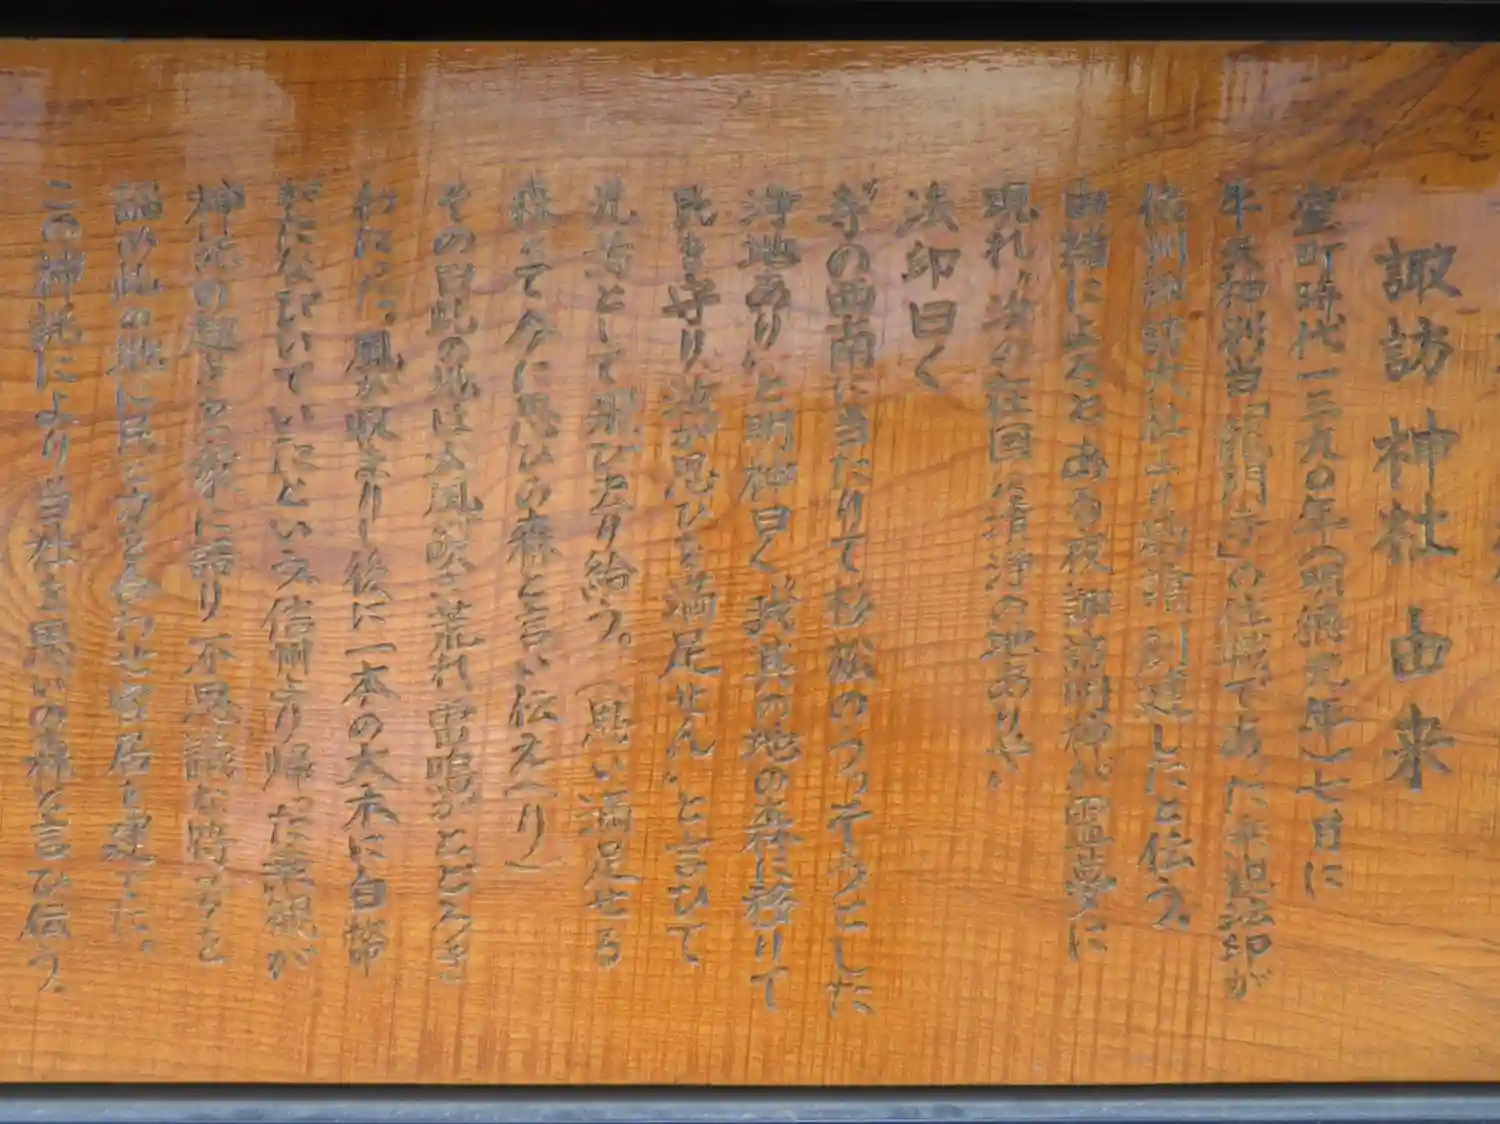 諏訪神社由来
室町時代一三九〇年(明徳元年)七月に
牛頭天神別当「龍門寺」の住職であった法印が
信州諏訪大社より勧請創建したと伝う。
由緒によるとある夜諏訪明神が霊夢に
現れ〝汝の在回に清浄の地ありや〟
法印曰く
〝寺の西南に当たりて杉松のうっそうとした
浄地あり〟と明神曰く〝我其の地の森に移りて
民を守り汝が思ひを満足せん〟と言ひて
光となって飛び去り給う。(思い満足せる
森とて今に思ひの森と言い伝えへり)
その翌此の地は大風吹き荒れ雷鳴がとどろき
わたった。風が収まりし後に一本の大木に白幣
がたなびいていたという。信州より帰った
神託の趣きを衆に語り不思議な時を
認め此の地に民と力を合わせ宮居を建てた。
この神託により当社を思いの森と言ひ伝う。